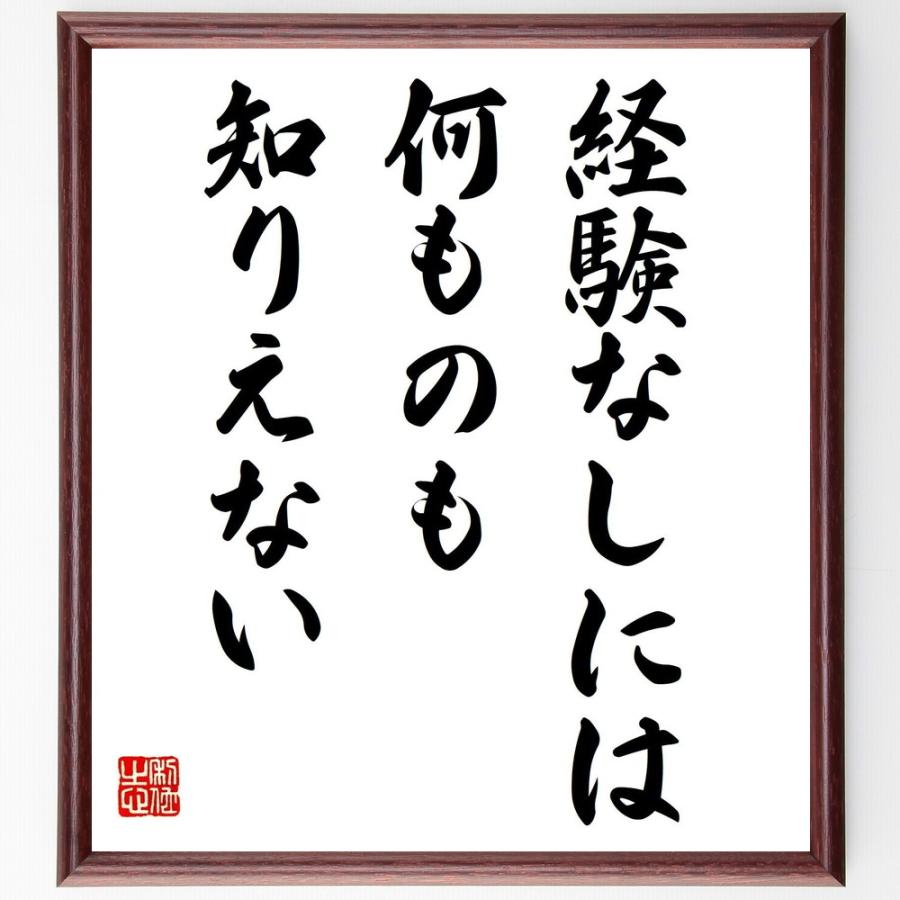 経験なしには
何ものも
知りえない